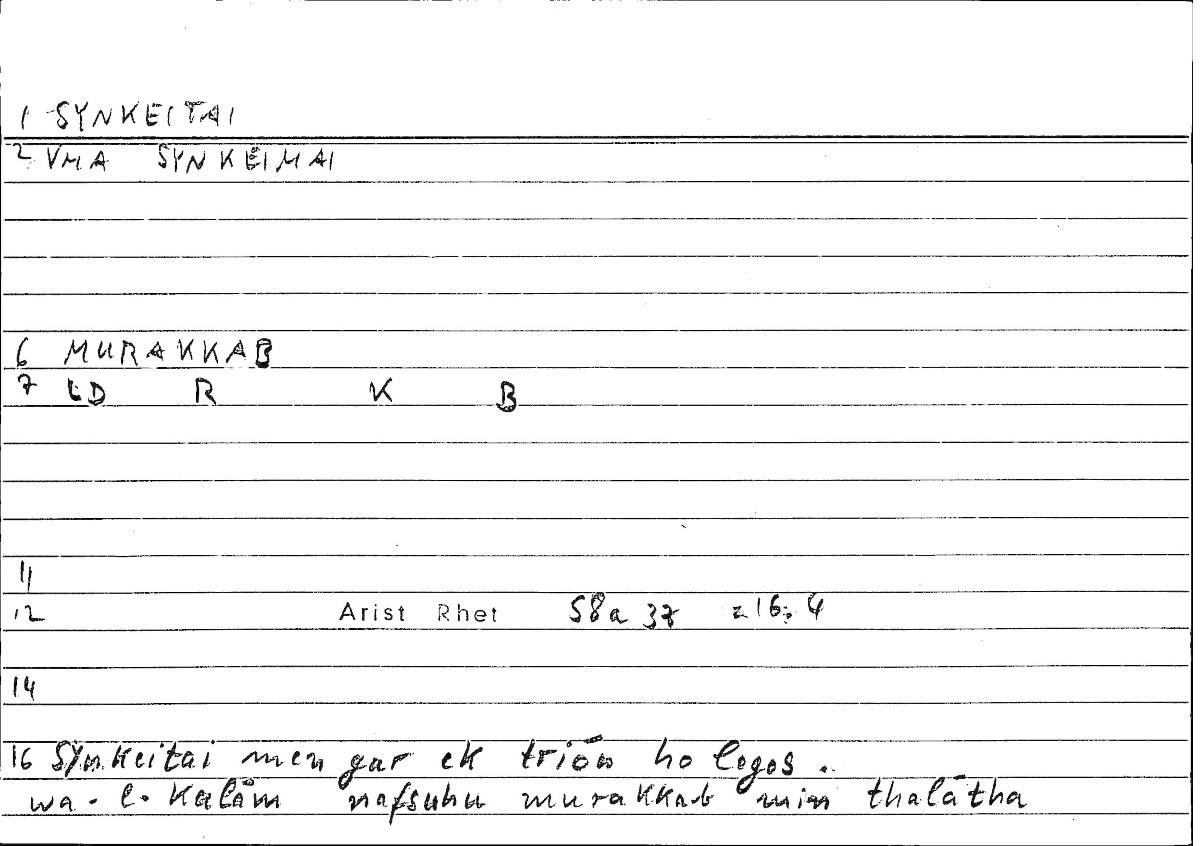 1 SYNKEITAI
2 VMA SYNKEIMAI
6 MURAKKAB
7 LD R K B
11
12 Arist Rhet 58a 37 = 16; 4
14
16 Synkeitai men gar ek triōn ho logos .
wa - l - Kalām nafsuhu murakkab min thalātha